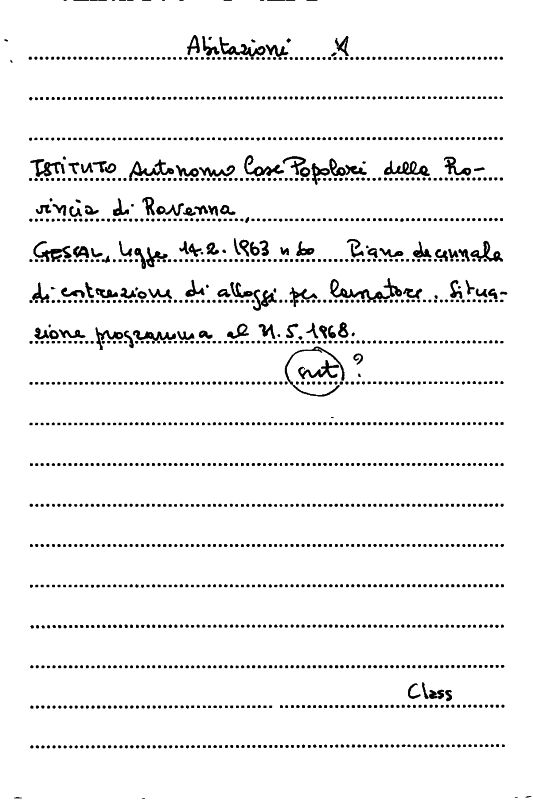 Abitazioni
ISTITUTO Autonomo Case Popolari della Pro-
vincia di Ravenna,
GESCAL, legge 14.2.1963 n 60 Piano decennale
di costruzione di alloggi per lavoratori. Situa-
zione programma al 31.5.1968.
?
Class